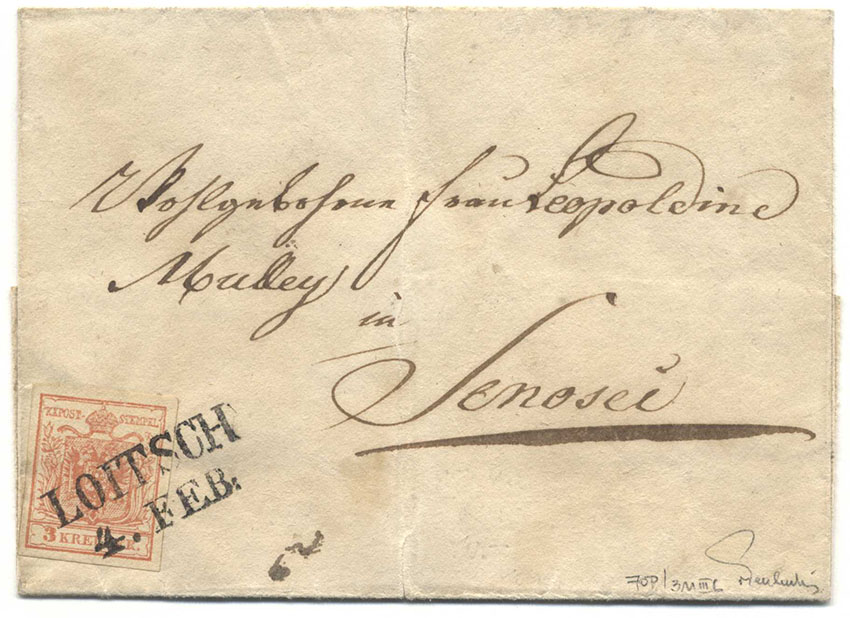 Wohlgebohrne Frau Leopoldine
Mulley
in
Senoseč
KKPOST-STEMPEL
3 KREUZER.
LOITSCH
4. FEB.